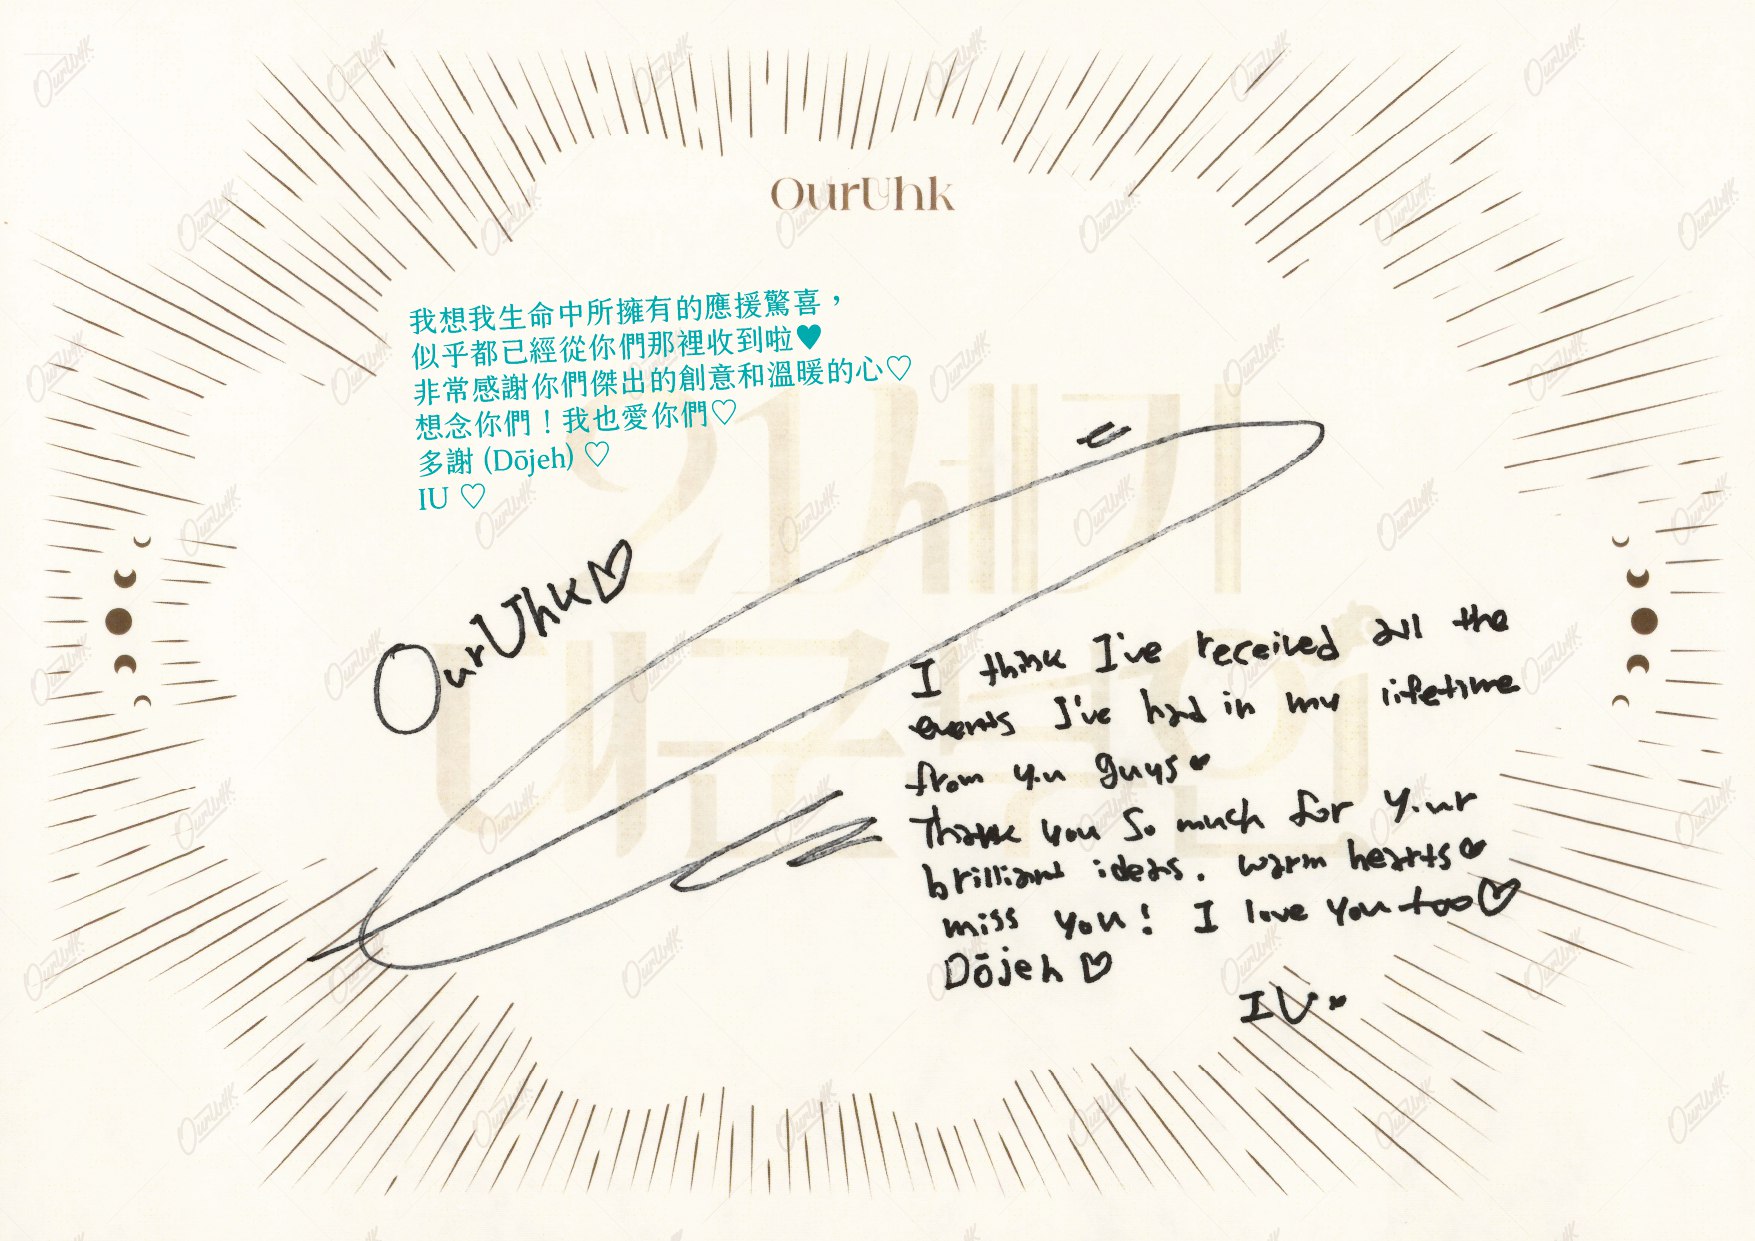 OurUhk
我想我生命中所擁有的應援驚喜，
似乎都已經從你們那裡收到啦♥
非常感謝你們傑出的創意和溫暖的心♡
想念你們！我也愛你們♡
多謝 (Dōjeh) ♡
IU ♡
21세기
대군부인
OurUhk♡
I think I've received all the
events I've had in my lifetime
from you guys♥
Thank you so much for your
brilliant ideas. warm hearts♥
miss you! I love you too♡
Dōjeh ♡
IU♥